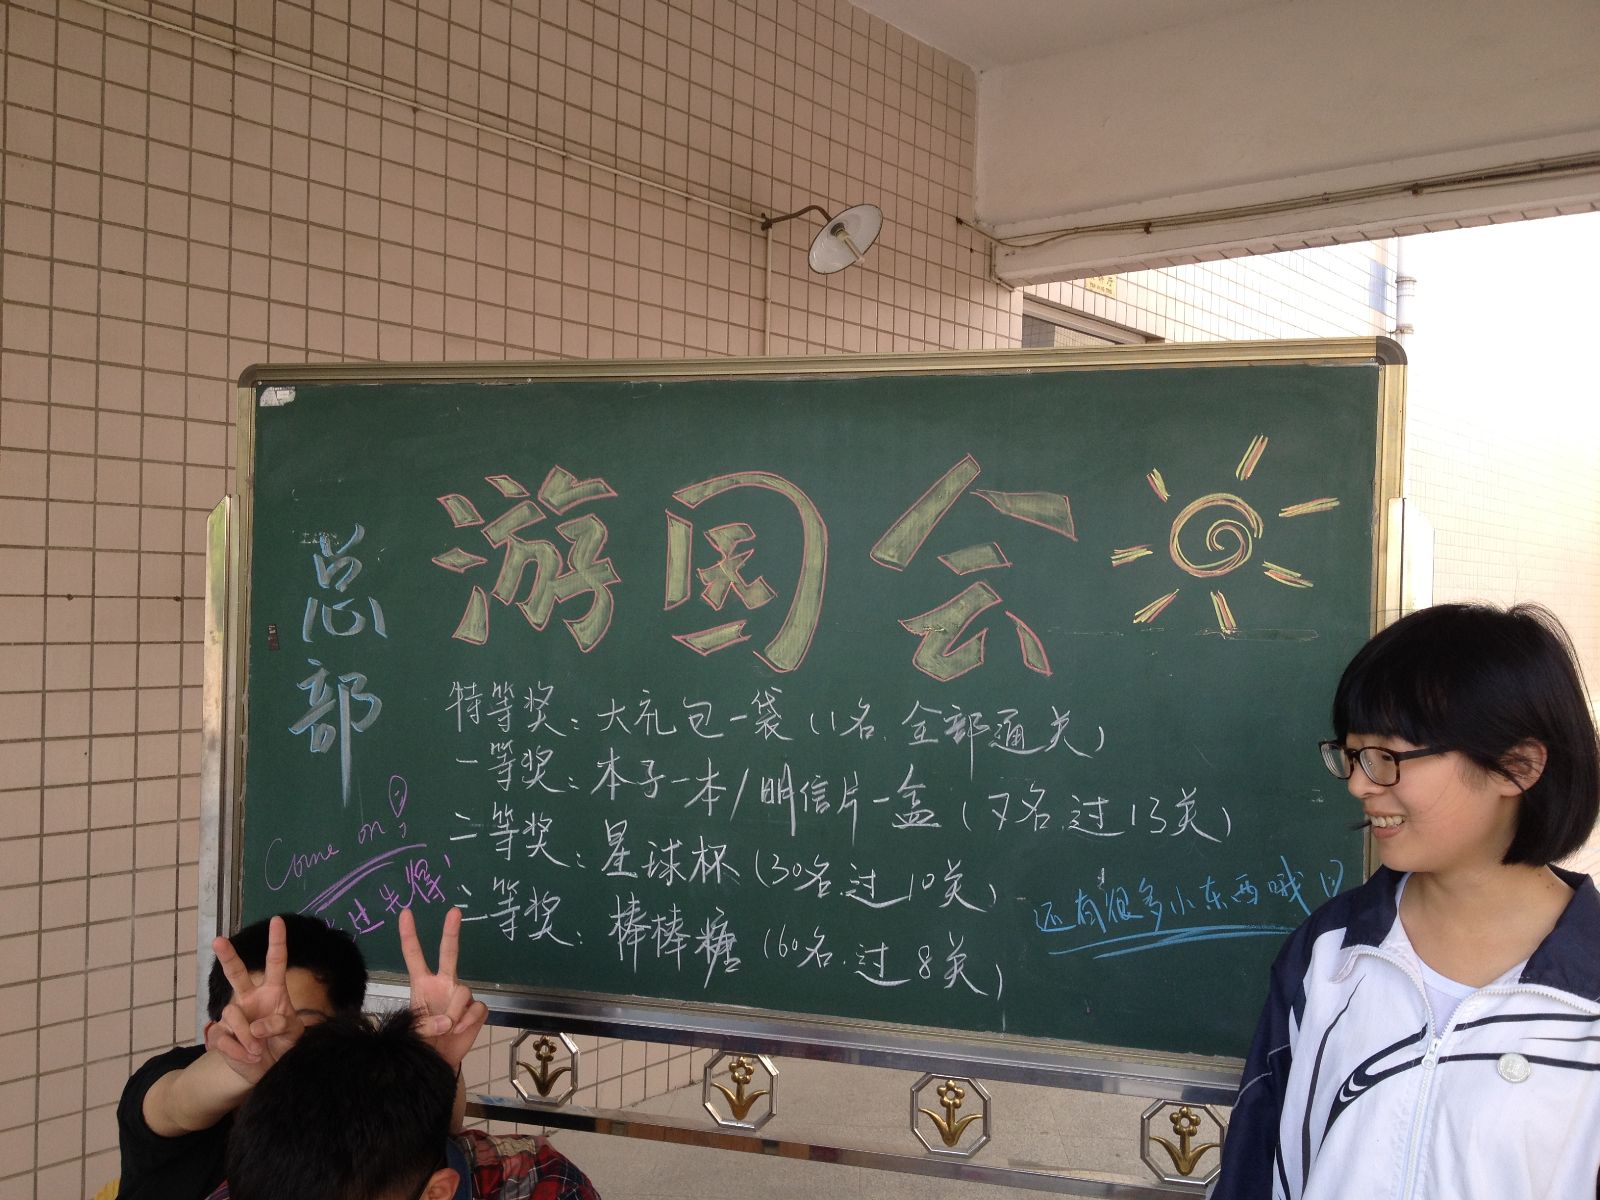 游园会
总部
特等奖：大礼包一袋（1名.全部通关）
一等奖：本子一本/明信片一盒（7名.过13关）
二等奖：星球杯（30名.过10关）
三等奖：棒棒糖（60名.过8关）
Come on!
过先得!
还有很多小东西哦